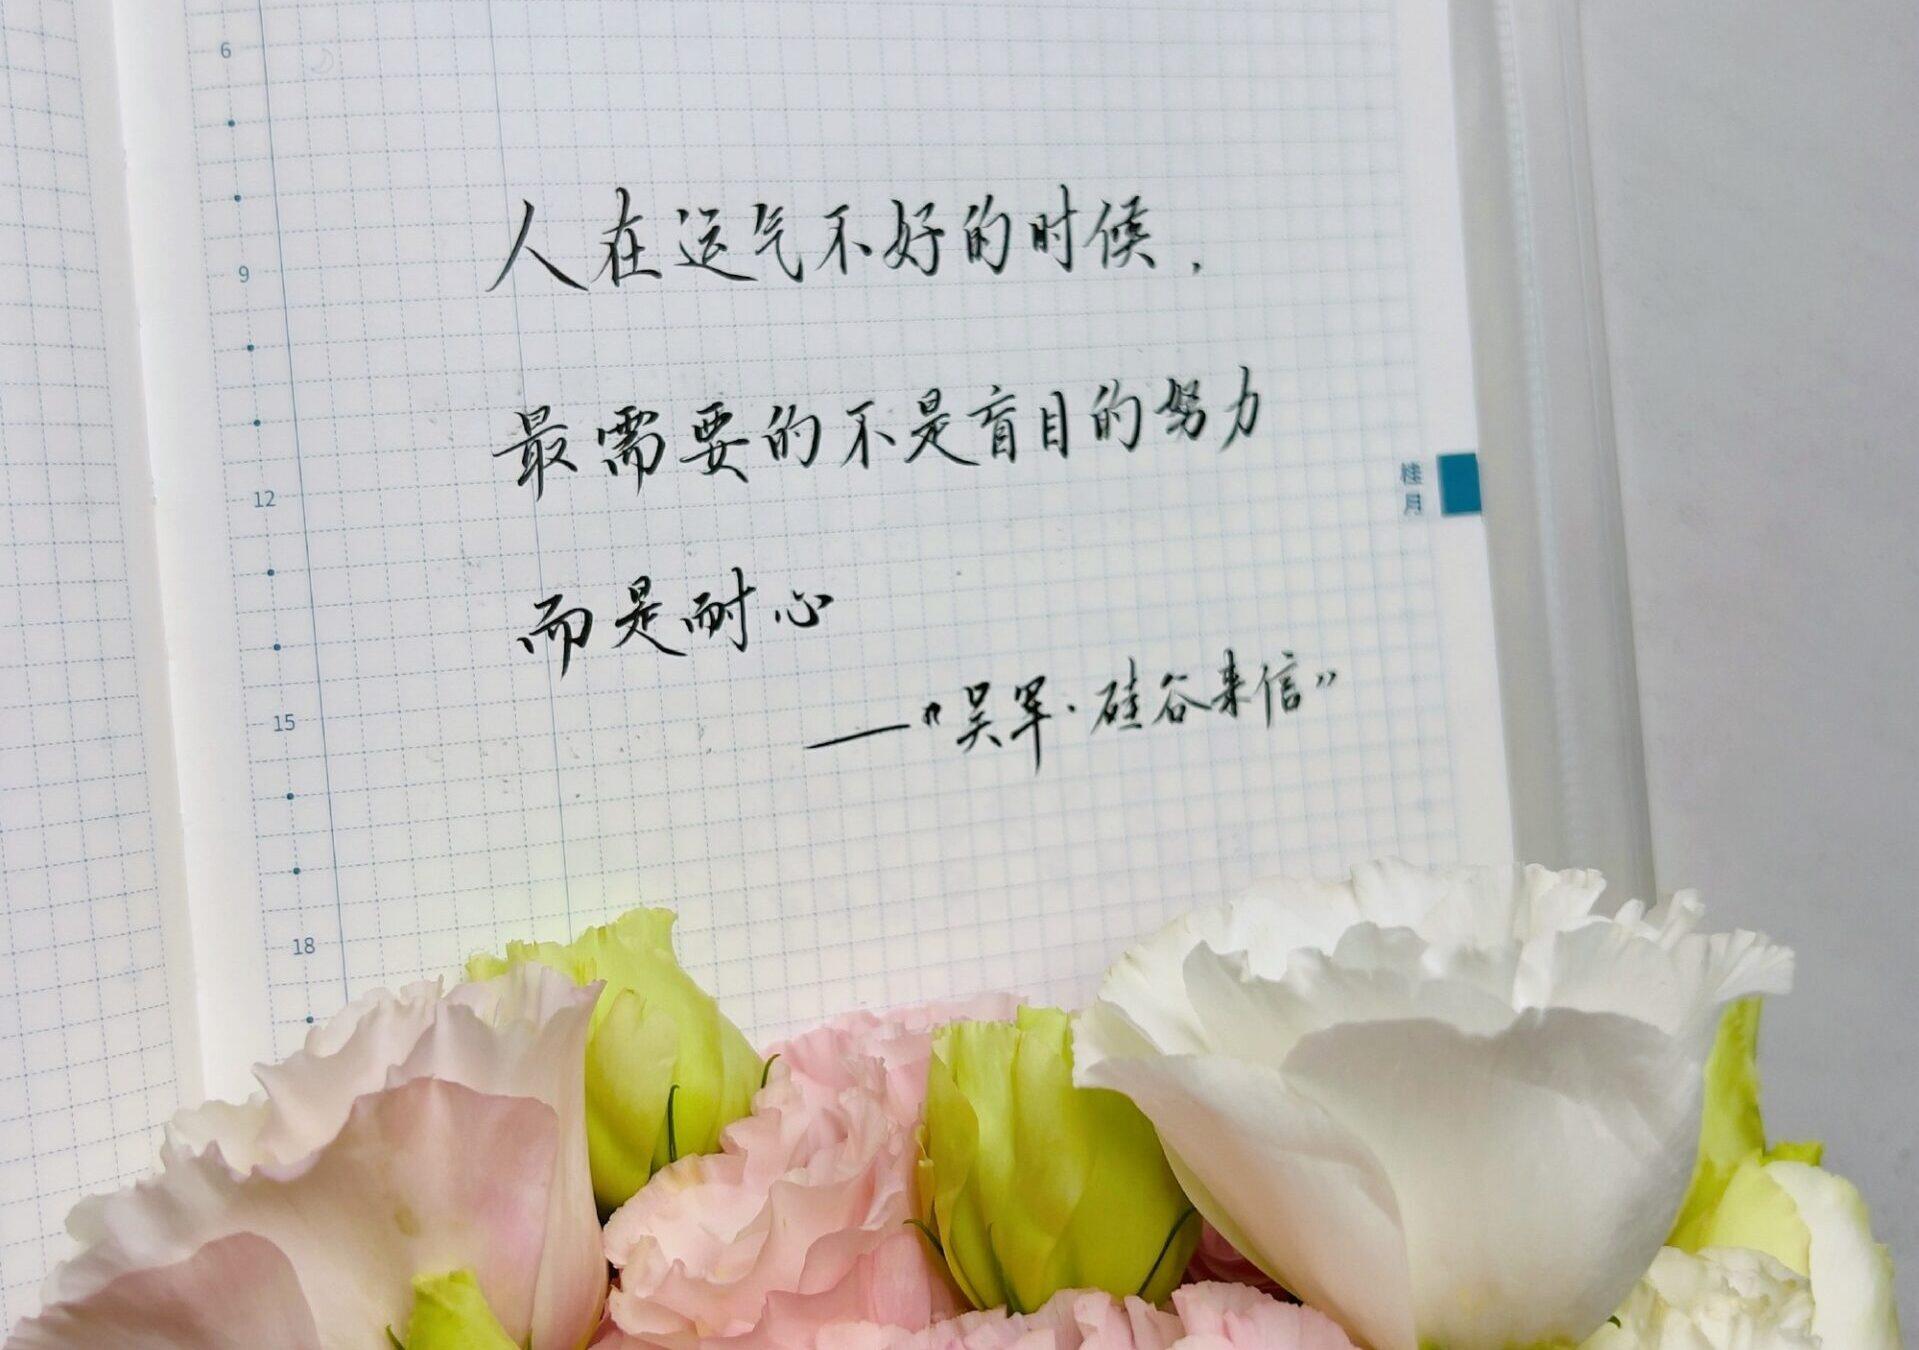 6
人在运气不好的时候,
9
最需要的不是盲目的努力
桂月
12
而是耐心
——“吴军·硅谷来信”
15
18